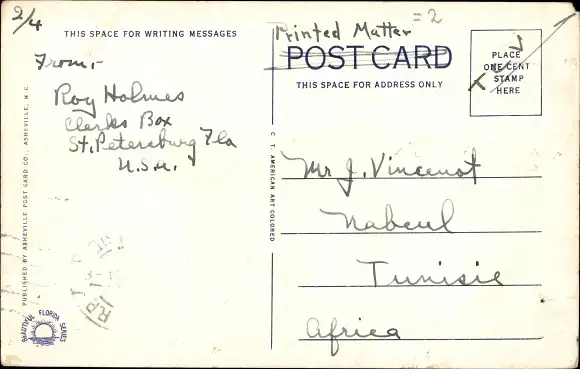 2/4
THIS SPACE FOR WRITING MESSAGES
Printed Matter = 2
POST CARD
THIS SPACE FOR ADDRESS ONLY
PLACE
ONE CENT
STAMP
HERE
From,-
Roy Holmes
Clerks Box
St. Petersburg Fla
U.S.A.
Mr J. Vincenot
Nabeul
Tunisie
Africa
C. T. AMERICAN ART COLORED
PUBLISHED BY ASHEVILLE POST CARD CO., ASHEVILLE, N.C.
BEAUTIFUL FLORIDA SERIES